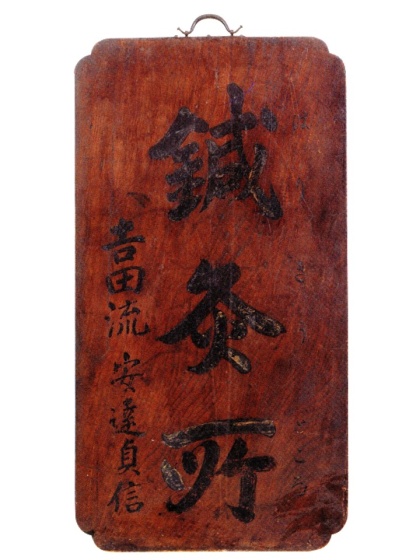 鍼灸所
吉田流 安達貞信